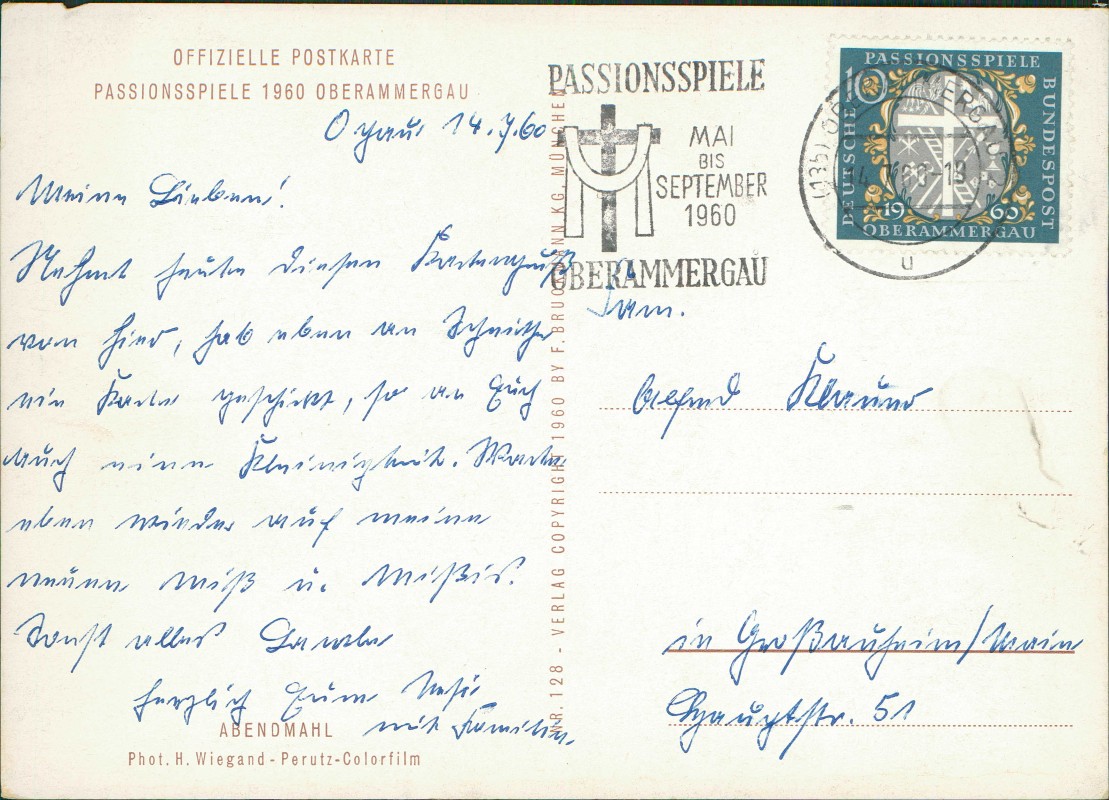 OFFIZIELLE POSTKARTE
PASSIONSSPIELE 1960 OBERAMMERGAU
O'gau 14.7.60
Meine Lieben!
Nehmt heute diesen Kartengruß
von hier, hab eben an
eine Karte geschickt, so an Euch
auch eine Kleinigkeit. Warte
eben wieder auf meine
neuen Miß u. Missis.
Sonst alles
herzlich Eure
mit Familie.
ABENDMAHL
Phot. H. Wiegand - Perutz-Colorfilm
NR. 128 - VERLAG COPYRIGHT 1960 BY F. BRUCKMANN KG, MÜNCHEN
PASSIONSSPIELE
MAI
BIS
SEPTEMBER
1960
OBERAMMERGAU
PASSIONSSPIELE
10
DEUTSCHE
BUNDESPOST
1960
OBERAMMERGAU
(13b) OBERAMMERGAU
u
Fam.
in Großauheim/Main
Hauptstr. 51